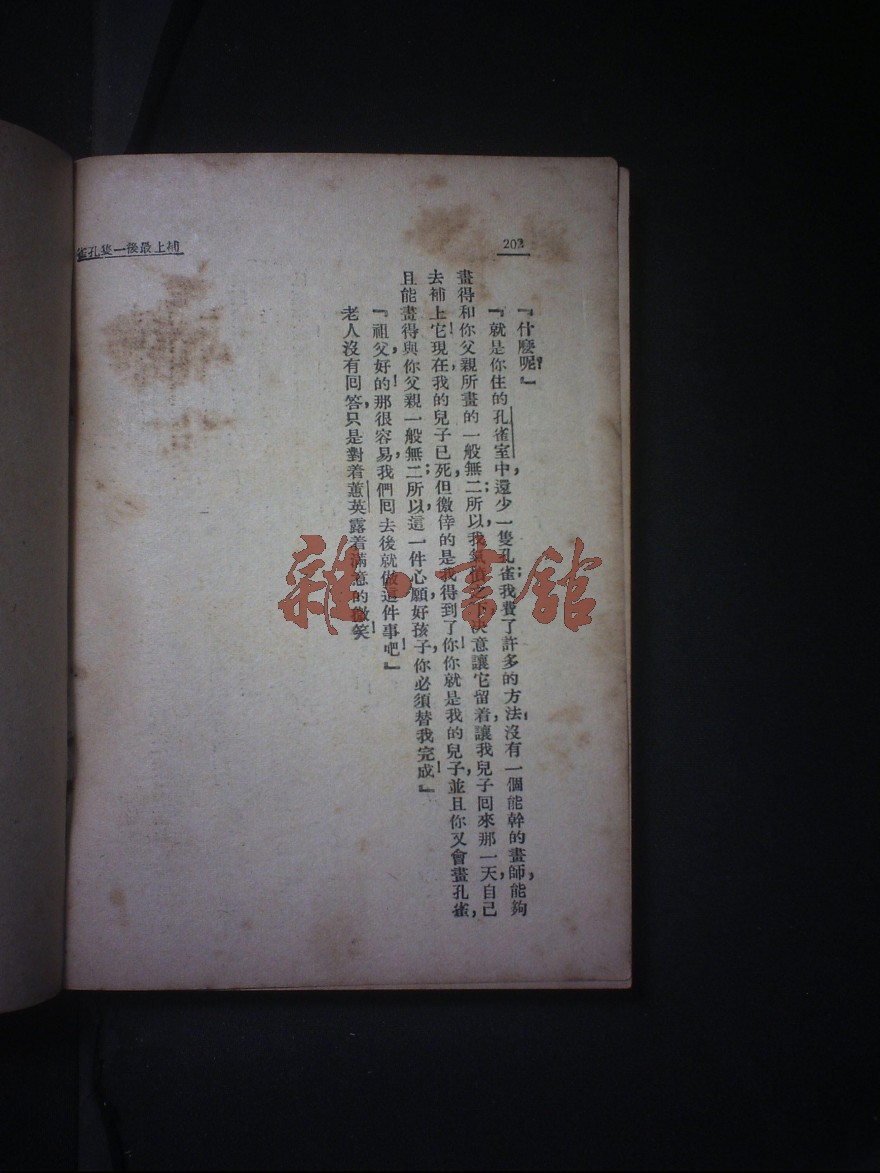 補上最後一隻孔雀
202
『什麼呢?』
『就是你住的孔雀室中,還少一隻孔雀;我費了許多的方法,沒有一個能幹的畫師,能夠
畫得和你父親所畫的一般無二;所以,我氣憤之下,決意讓它留着,讓我兒子回來那一天,自己
去補上它!現在,我的兒子已死,但徼倖的是,我得到了你!你就是我的兒子,並且你又會畫孔雀,
且能畫得與你父親一般無二;所以,這一件心願,好孩子,你必須替我完成!』
『祖父,好的!那很容易,我們囘去後就做這件事吧!』
老人沒有囘答,只是對着蕙英露着滿意的微笑!
雜·書館